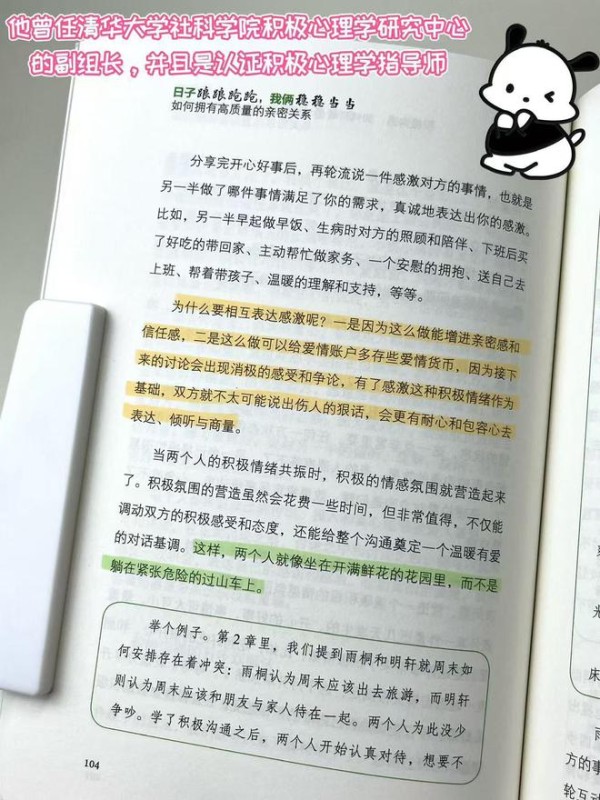 他曾任清华大学社科学院积极心理学研究中心
的副组长，并且是认证积极心理学指导师
日子踉踉跄跄，我俩稳稳当当
如何拥有高质量的亲密关系
分享完开心好事后，再轮流说一件感激对方的事情，也就是
另一半做了哪件事情满足了你的需求，真诚地表达出你的感激。
比如，另一半早起做早饭、生病时对方的照顾和陪伴、下班后买
了好吃的带回家、主动帮忙做家务、一个安慰的拥抱、送自己去
上班、帮着带孩子、温暖的理解和支持，等等。
为什么要相互表达感激呢？一是因为这么做能增进亲密感和
信任感，二是这么做可以给爱情账户多存些爱情货币，因为接下
来的讨论会出现消极的感受和争论，有了感激这种积极情绪作为
基础，双方就不太可能说出伤人的狠话，会更有耐心和包容心去
表达、倾听与商量。
当两个人的积极情绪共振时，积极的情感氛围就营造起来
了。积极氛围的营造虽然会花费一些时间，但非常值得，不仅能
调动双方的积极感受和态度，还能给整个沟通奠定一个温暖有爱
的对话基调。这样，两个人就像坐在开满鲜花的花园里，而不是
躺在紧张危险的过山车上。
举个例子。第2章里，我们提到雨桐和明轩就周末如
何安排存在着冲突：雨桐认为周末应该出去旅游，而明轩
则认为周末应该和朋友与家人待在一起。两个人为此没少
争吵。学了积极沟通之后，两个人开始认真对待，想要不
104
床
方的事
轮互动